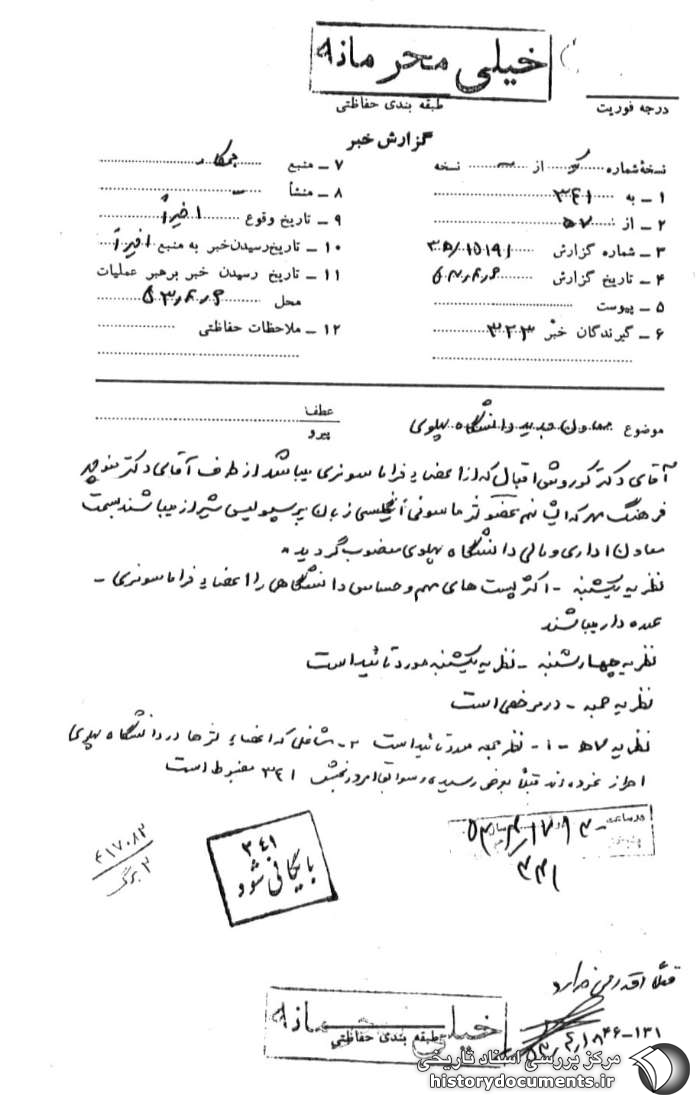 خیلی محرمانه
طبقه بندی حفاظتی
درجه فوریت
گزارش خبر
نسخهٔ شماره از نسخه
۱ ـ به ۳۴۱
۲ ـ از ۵۷
۳ ـ شماره گزارش
۴ ـ تاریخ گزارش
۵ ـ پیوست
۶ ـ گیرندگان خبر ۳۲۳
۷ ـ منبع همکار
۸ ـ منشأ
۹ ـ تاریخ وقوع اخیراً
۱۰ ـ تاریخ رسیدن خبر به منبع اخیراً
۱۱ ـ تاریخ رسیدن خبر برهبر عملیات
محل
۱۲ ـ ملاحظات حفاظتی
موضوع معاون جدید دانشگاه پهلوی
عطف
پیرو
آقای دکتر کوروش اقبال که از اعضاء فراماسونری میباشد از طرف آقای دکتر منوچهر
فرهنگ مهر که ایشان هم عضو لژ ماسونی انگلیسی زبان پرسپولیس شیراز میباشند بسمت
معاون اداری و مالی دانشگاه پهلوی منصوب گردید.
نظریه یکشنبه - اکثر پست های مهم و حساس دانشگاهی را اعضاء فراماسونری -
عهده دار میباشند
نظریه چهارشنبه - نظریه یکشنبه مورد تائید است
نظریه جمعه - در مرخصی است
نظریه ۵۷ هـ - ۱- نظر جمعه مورد تائید است ۲- مشاغلی که اعضاء لژها در دانشگاه پهلوی
احراز نموده اند قبلاً بعرض رسیده و سوابق امر در بخش ۳۴۱ مضبوط است
۴۱۷۰۸۲
۲ برگ
۳۴۱
بایگانی شود
فعلاً اقدامی ندارد
خیلی محرمانه
طبقه بندی حفاظتی
۱۳۱-۱۸۴۶
مرکز بررسی اسناد تاریخی
historydocuments.ir